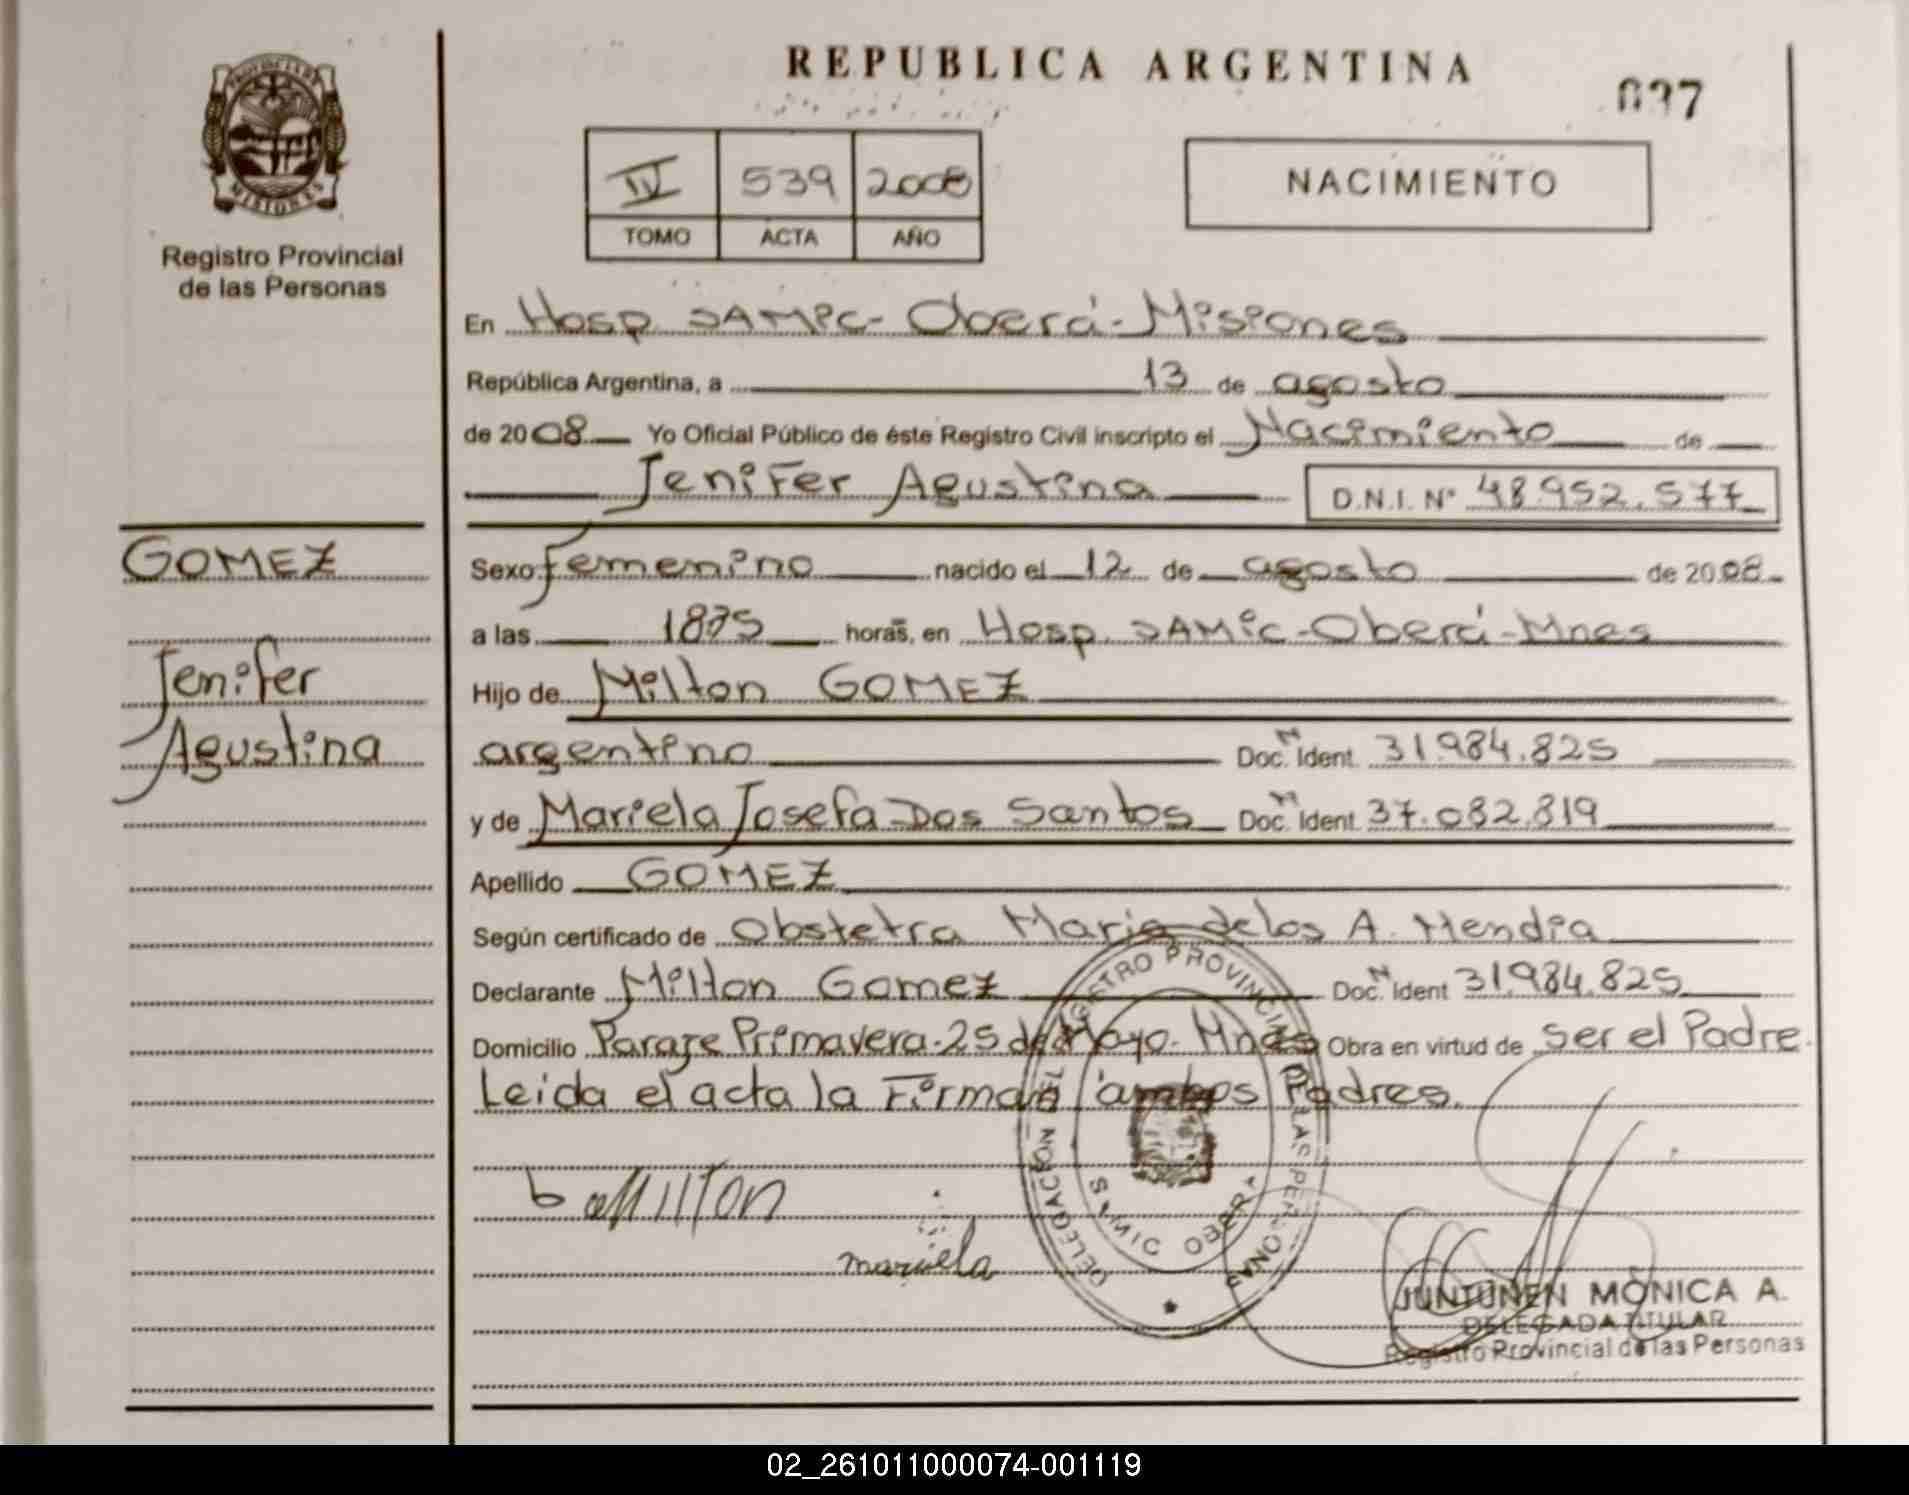 PROVINCIA DE
MISIONES
Registro Provincial
de las Personas
REPUBLICA ARGENTINA
037
IV 539 2008
TOMO ACTA AÑO
NACIMIENTO
En Hosp. SAMIC - Oberá - Misiones
República Argentina, a 13 de agosto
de 2008 Yo Oficial Público de éste Registro Civil inscripto el Nacimiento de
Jenifer Agustina D.N.I. Nº 48.952.577
GOMEZ
Jenifer
Agustina
Sexo femenino nacido el 12 de agosto de 2008
a las horas, en Hosp. SAMIC - Oberá - Mnes
Hijo de Milton GOMEZ
argentino Doc. N Ident. 31.984.825
y de Mariela Josefa Dos Santos Doc. N Ident. 37.082.819
Apellido GOMEZ
Según certificado de Obstetra Maria de los A. Mendia
Declarante Milton Gomez Doc. N Ident 31.984.825
Domicilio Paraje Primavera - 25 de Mayo - Mnes Obra en virtud de ser el Padre.
Leida el acta la Firman ambos Padres.
Milton
mariela
DELEGACION DEL REGISTRO PROVINCIAL DE LAS PERSONAS
OBERA
JUNTUNEN MONICA A.
DELEGADA TITULAR
Registro Provincial de las Personas
02_261011000074-001119